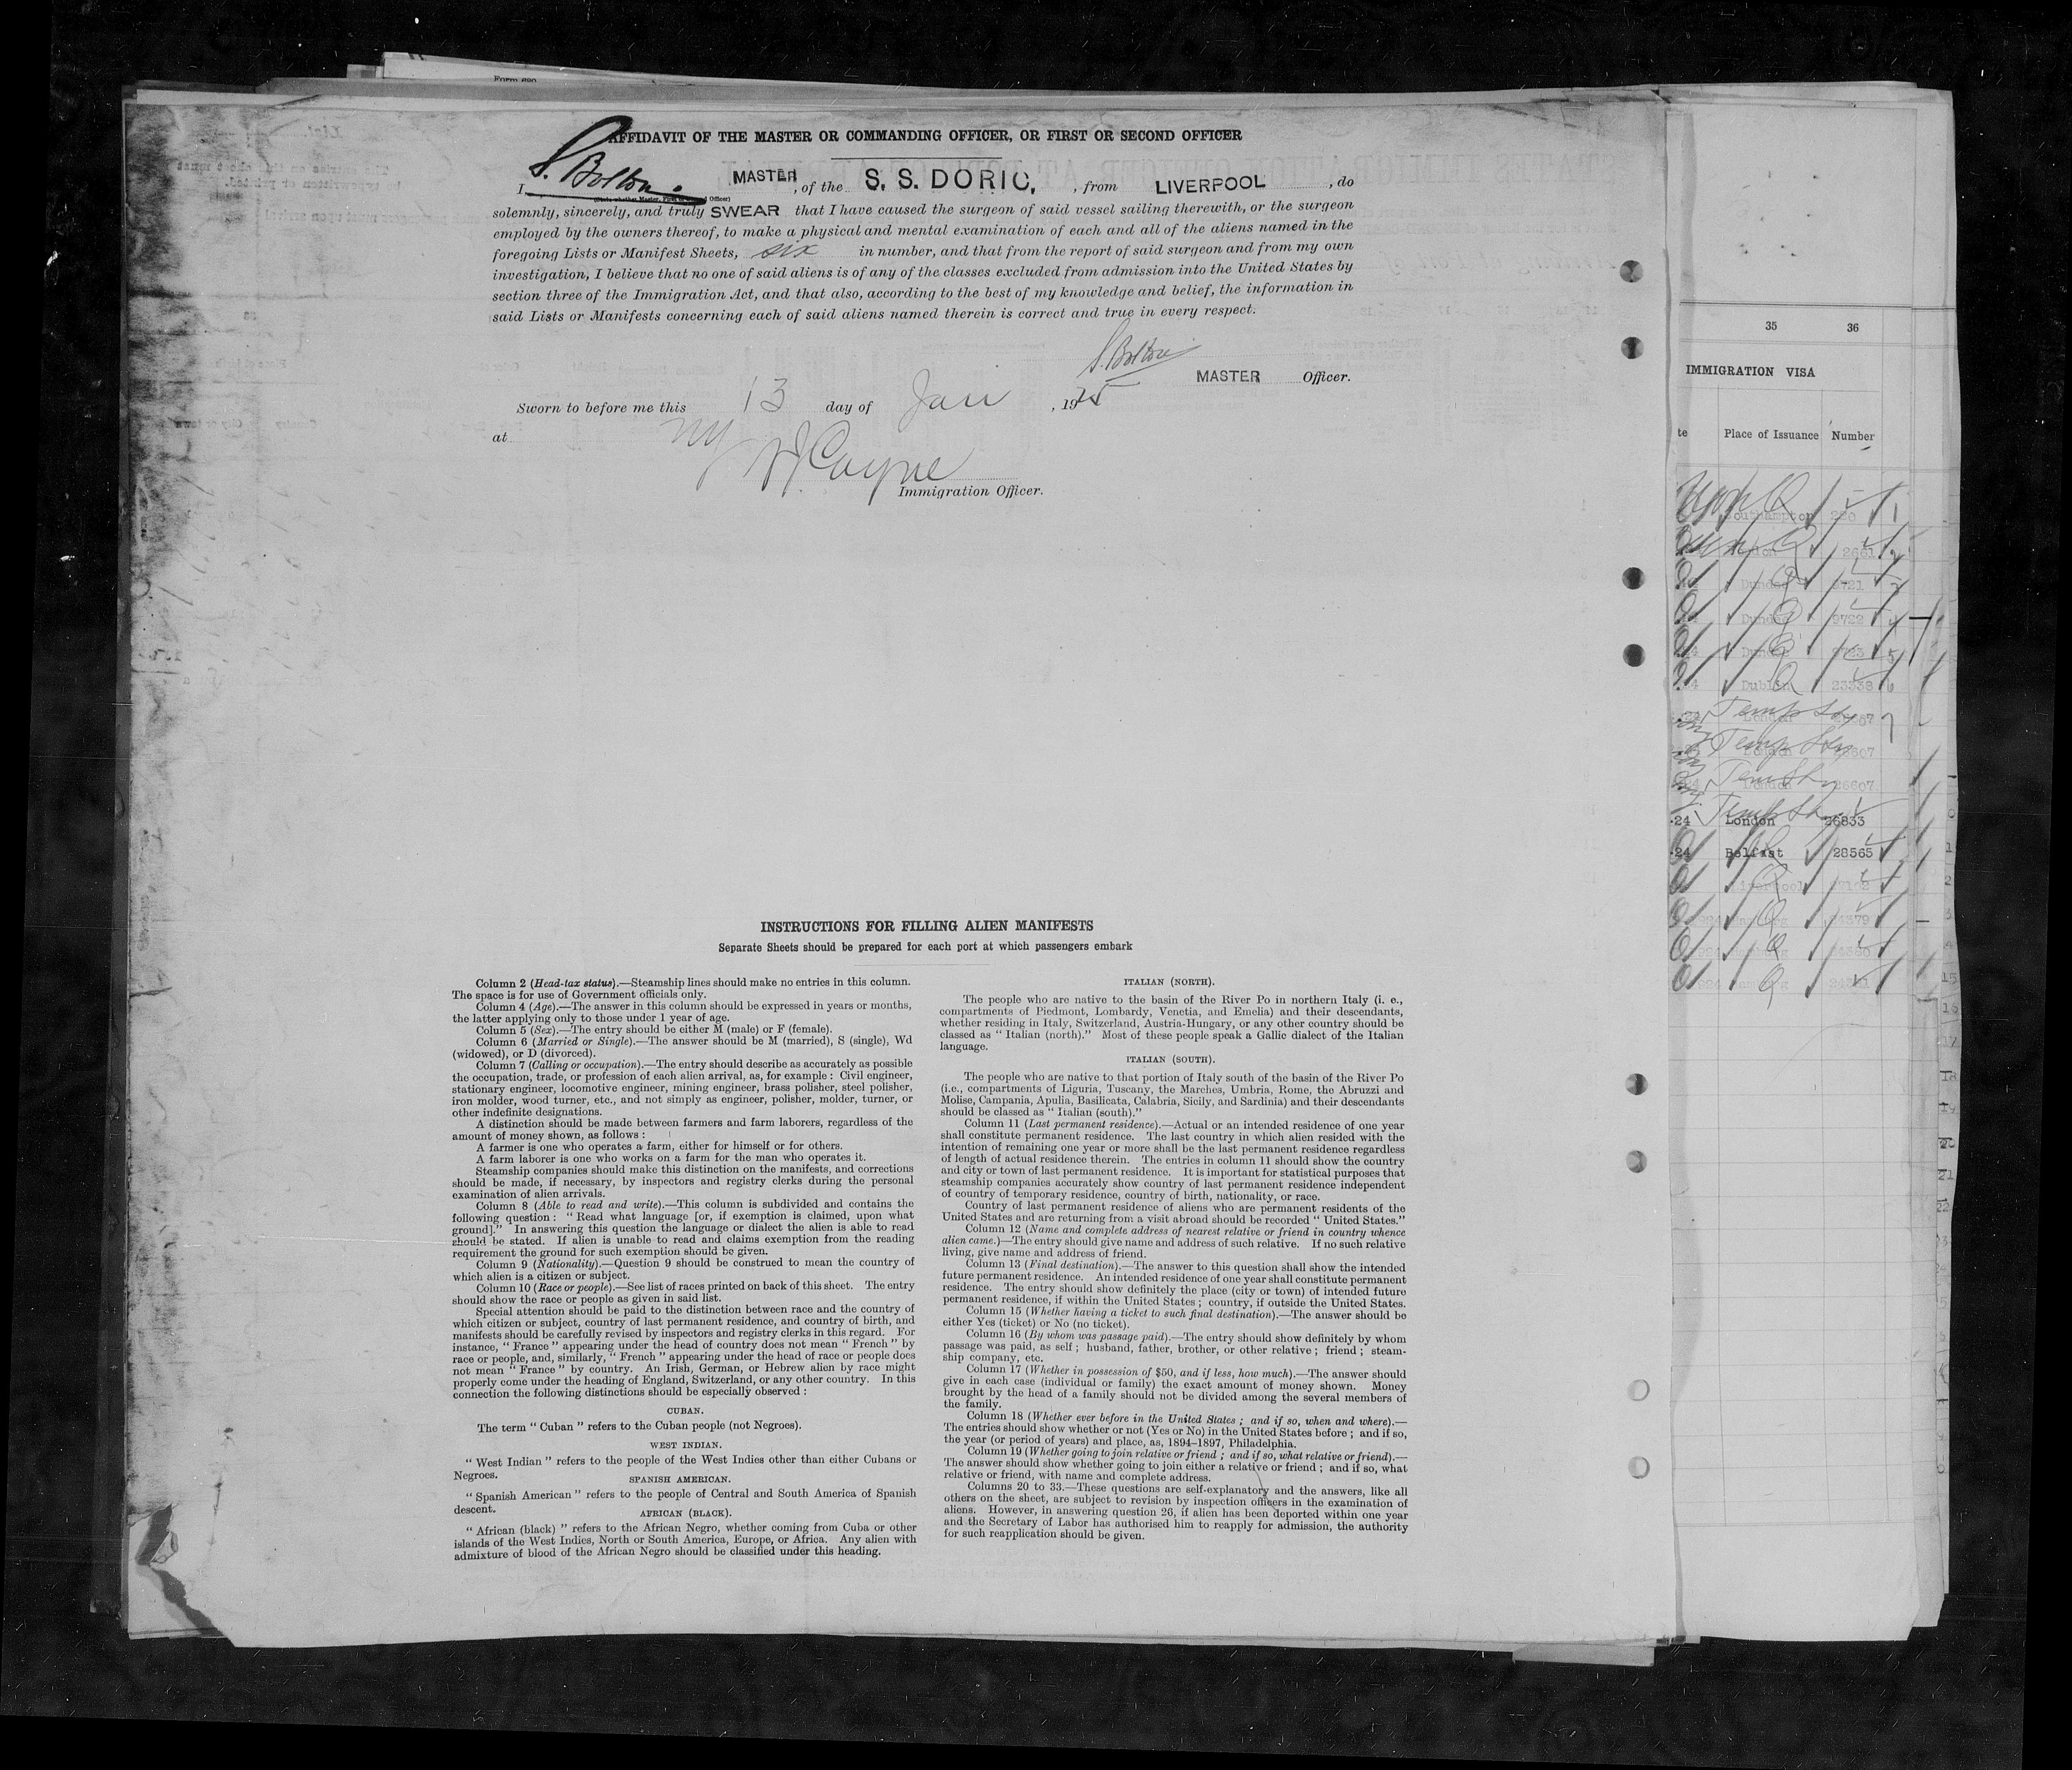 Form 680
AFFIDAVIT OF THE MASTER OR COMMANDING OFFICER, OR FIRST OR SECOND OFFICER
I S. Bolton. MASTER, of the S. S. DORIC, , from LIVERPOOL , do
solemnly, sincerely, and truly SWEAR that I have caused the surgeon of said vessel sailing therewith, or the surgeon
employed by the owners thereof, to make a physical and mental examination of each and all of the aliens named in the
foregoing Lists or Manifest Sheets, six in number, and that from the report of said surgeon and from my own
investigation, I believe that no one of said aliens is of any of the classes excluded from admission into the United States by
section three of the Immigration Act, and that also, according to the best of my knowledge and belief, the information in
said Lists or Manifests concerning each of said aliens named therein is correct and true in every respect.
S. Bolton
MASTER Officer.
Sworn to before me this 13 day of Jan , 1925
at NY
Coyne
Immigration Officer.
INSTRUCTIONS FOR FILLING ALIEN MANIFESTS
Separate Sheets should be prepared for each port at which passengers embark
Column 2 (Head-tax status).—Steamship lines should make no entries in this column.
The space is for use of Government officials only.
Column 4 (Age).—The answer in this column should be expressed in years or months,
the latter applying only to those under 1 year of age.
Column 5 (Sex).—The entry should be either M (male) or F (female).
Column 6 (Married or Single).—The answer should be M (married), S (single), Wd
(widowed), or D (divorced).
Column 7 (Calling or occupation).—The entry should describe as accurately as possible
the occupation, trade, or profession of each alien arrival, as, for example : Civil engineer,
stationary engineer, locomotive engineer, mining engineer, brass polisher, steel polisher,
iron molder, wood turner, etc., and not simply as engineer, polisher, molder, turner, or
other indefinite designations.
A distinction should be made between farmers and farm laborers, regardless of the
amount of money shown, as follows :
A farmer is one who operates a farm, either for himself or for others.
A farm laborer is one who works on a farm for the man who operates it.
Steamship companies should make this distinction on the manifests, and corrections
should be made, if necessary, by inspectors and registry clerks during the personal
examination of alien arrivals.
Column 8 (Able to read and write).—This column is subdivided and contains the
following question : " Read what language [or, if exemption is claimed, upon what
ground]." In answering this question the language or dialect the alien is able to read
should be stated. If alien is unable to read and claims exemption from the reading
requirement the ground for such exemption should be given.
Column 9 (Nationality).—Question 9 should be construed to mean the country of
which alien is a citizen or subject.
Column 10 (Race or people).—See list of races printed on back of this sheet. The entry
should show the race or people as given in said list.
Special attention should be paid to the distinction between race and the country of
which citizen or subject, country of last permanent residence, and country of birth, and
manifests should be carefully revised by inspectors and registry clerks in this regard. For
instance, " France " appearing under the head of country does not mean " French " by
race or people, and, similarly, " French " appearing under the head of race or people does
not mean " France " by country. An Irish, German, or Hebrew alien by race might
properly come under the heading of England, Switzerland, or any other country. In this
connection the following distinctions should be especially observed :
CUBAN.
The term " Cuban " refers to the Cuban people (not Negroes).
WEST INDIAN.
" West Indian " refers to the people of the West Indies other than either Cubans or
Negroes.
SPANISH AMERICAN.
" Spanish American " refers to the people of Central and South America of Spanish
descent.
AFRICAN (BLACK).
" African (black) " refers to the African Negro, whether coming from Cuba or other
islands of the West Indies, North or South America, Europe, or Africa. Any alien with
admixture of blood of the African Negro should be classified under this heading.
ITALIAN (NORTH).
The people who are native to the basin of the River Po in northern Italy (i. e.,
compartments of Piedmont, Lombardy, Venetia, and Emelia) and their descendants,
whether residing in Italy, Switzerland, Austria-Hungary, or any other country should be
classed as " Italian (north)." Most of these people speak a Gallic dialect of the Italian
language.
ITALIAN (SOUTH).
The people who are native to that portion of Italy south of the basin of the River Po
(i.e., compartments of Liguria, Tuscany, the Marches, Umbria, Rome, the Abruzzi and
Molise, Campania, Apulia, Basilicata, Calabria, Sicily, and Sardinia) and their descendants
should be classed as " Italian (south)."
Column 11 (Last permanent residence).—Actual or an intended residence of one year
shall constitute permanent residence. The last country in which alien resided with the
intention of remaining one year or more shall be the last permanent residence regardless
of length of actual residence therein. The entries in column 11 should show the country
and city or town of last permanent residence. It is important for statistical purposes that
steamship companies accurately show country of last permanent residence independent
of country of temporary residence, country of birth, nationality, or race.
Country of last permanent residence of aliens who are permanent residents of the
United States and are returning from a visit abroad should be recorded " United States."
Column 12 (Name and complete address of nearest relative or friend in country whence
alien came.)—The entry should give name and address of such relative. If no such relative
living, give name and address of friend.
Column 13 (Final destination).—The answer to this question shall show the intended
future permanent residence. An intended residence of one year shall constitute permanent
residence. The entry should show definitely the place (city or town) of intended future
permanent residence, if within the United States ; country, if outside the United States.
Column 15 (Whether having a ticket to such final destination).—The answer should be
either Yes (ticket) or No (no ticket).
Column 16 (By whom was passage paid).—The entry should show definitely by whom
passage was paid, as self ; husband, father, brother, or other relative ; friend ; steam-
ship company, etc.
Column 17 (Whether in possession of $50, and if less, how much).—The answer should
give in each case (individual or family) the exact amount of money shown. Money
brought by the head of a family should not be divided among the several members of
the family.
Column 18 (Whether ever before in the United States ; and if so, when and where).—
The entries should show whether or not (Yes or No) in the United States before ; and if so,
the year (or period of years) and place, as, 1894–1897, Philadelphia.
Column 19 (Whether going to join relative or friend ; and if so, what relative or friend).—
The answer should show whether going to join either a relative or friend ; and if so, what
relative or friend, with name and complete address.
Columns 20 to 33.—These questions are self-explanatory and the answers, like all
others on the sheet, are subject to revision by inspection officers in the examination of
aliens. However, in answering question 26, if alien has been deported within one year
and the Secretary of Labor has authorised him to reapply for admission, the authority
for such reapplication should be given.
35 36
IMMIGRATION VISA
te Place of Issuance Number
Southampton
Dundee
Dundee
Dundee
Dublin 23338 6
Temp Stay
Temp Stay
26607
24 London 26833
24 Belfast 28565
Liverpool